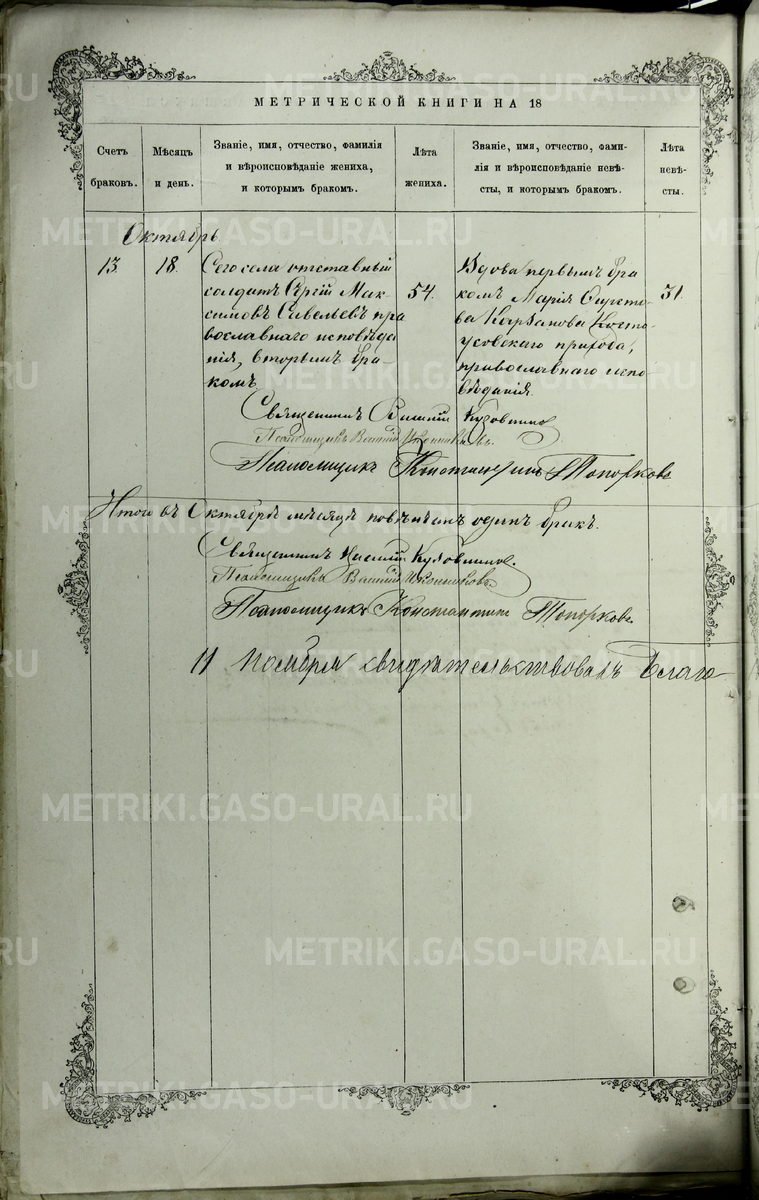 МЕТРИЧЕСКОЙ КНИГИ НА 18
Счетъ
браковъ.
Мѣсяцъ
и день.
Званіе, имя, отчество, фамилія
и вѣроисповѣданіе жениха,
и которымъ бракомъ.
Лѣта
жениха.
Званіе, имя, отчество, фами-
лія и вѣроисповѣданіе невѣ-
сты, и которымъ бракомъ.
Лѣта
невѣ-
сты.
Октябрь
13. 18.
Сего села отставный
солдатъ Сергій Мак-
симовъ Савельевъ пра
вославнаго исповѣда
нія, вторымъ бра-
комъ
54.
Вдова первымъ бра
комъ Марія
прихода,
православнаго испо
вѣданія.
31.
Священникъ Василій Кузовниковъ
Псаломщикъ Василій Иконниковъ.
Псаломщикъ Константинъ Топорковъ
Итого въ Октябрѣ мѣсяцѣ повѣнчанъ одинъ бракъ.
Священникъ Василій Кузовниковъ.
Псаломщикъ Василій Иконниковъ
Псаломщикъ Константинъ Топорковъ
11 Ноября свидѣтельствовалъ Благо
METRIKI.GASO-URAL.RU